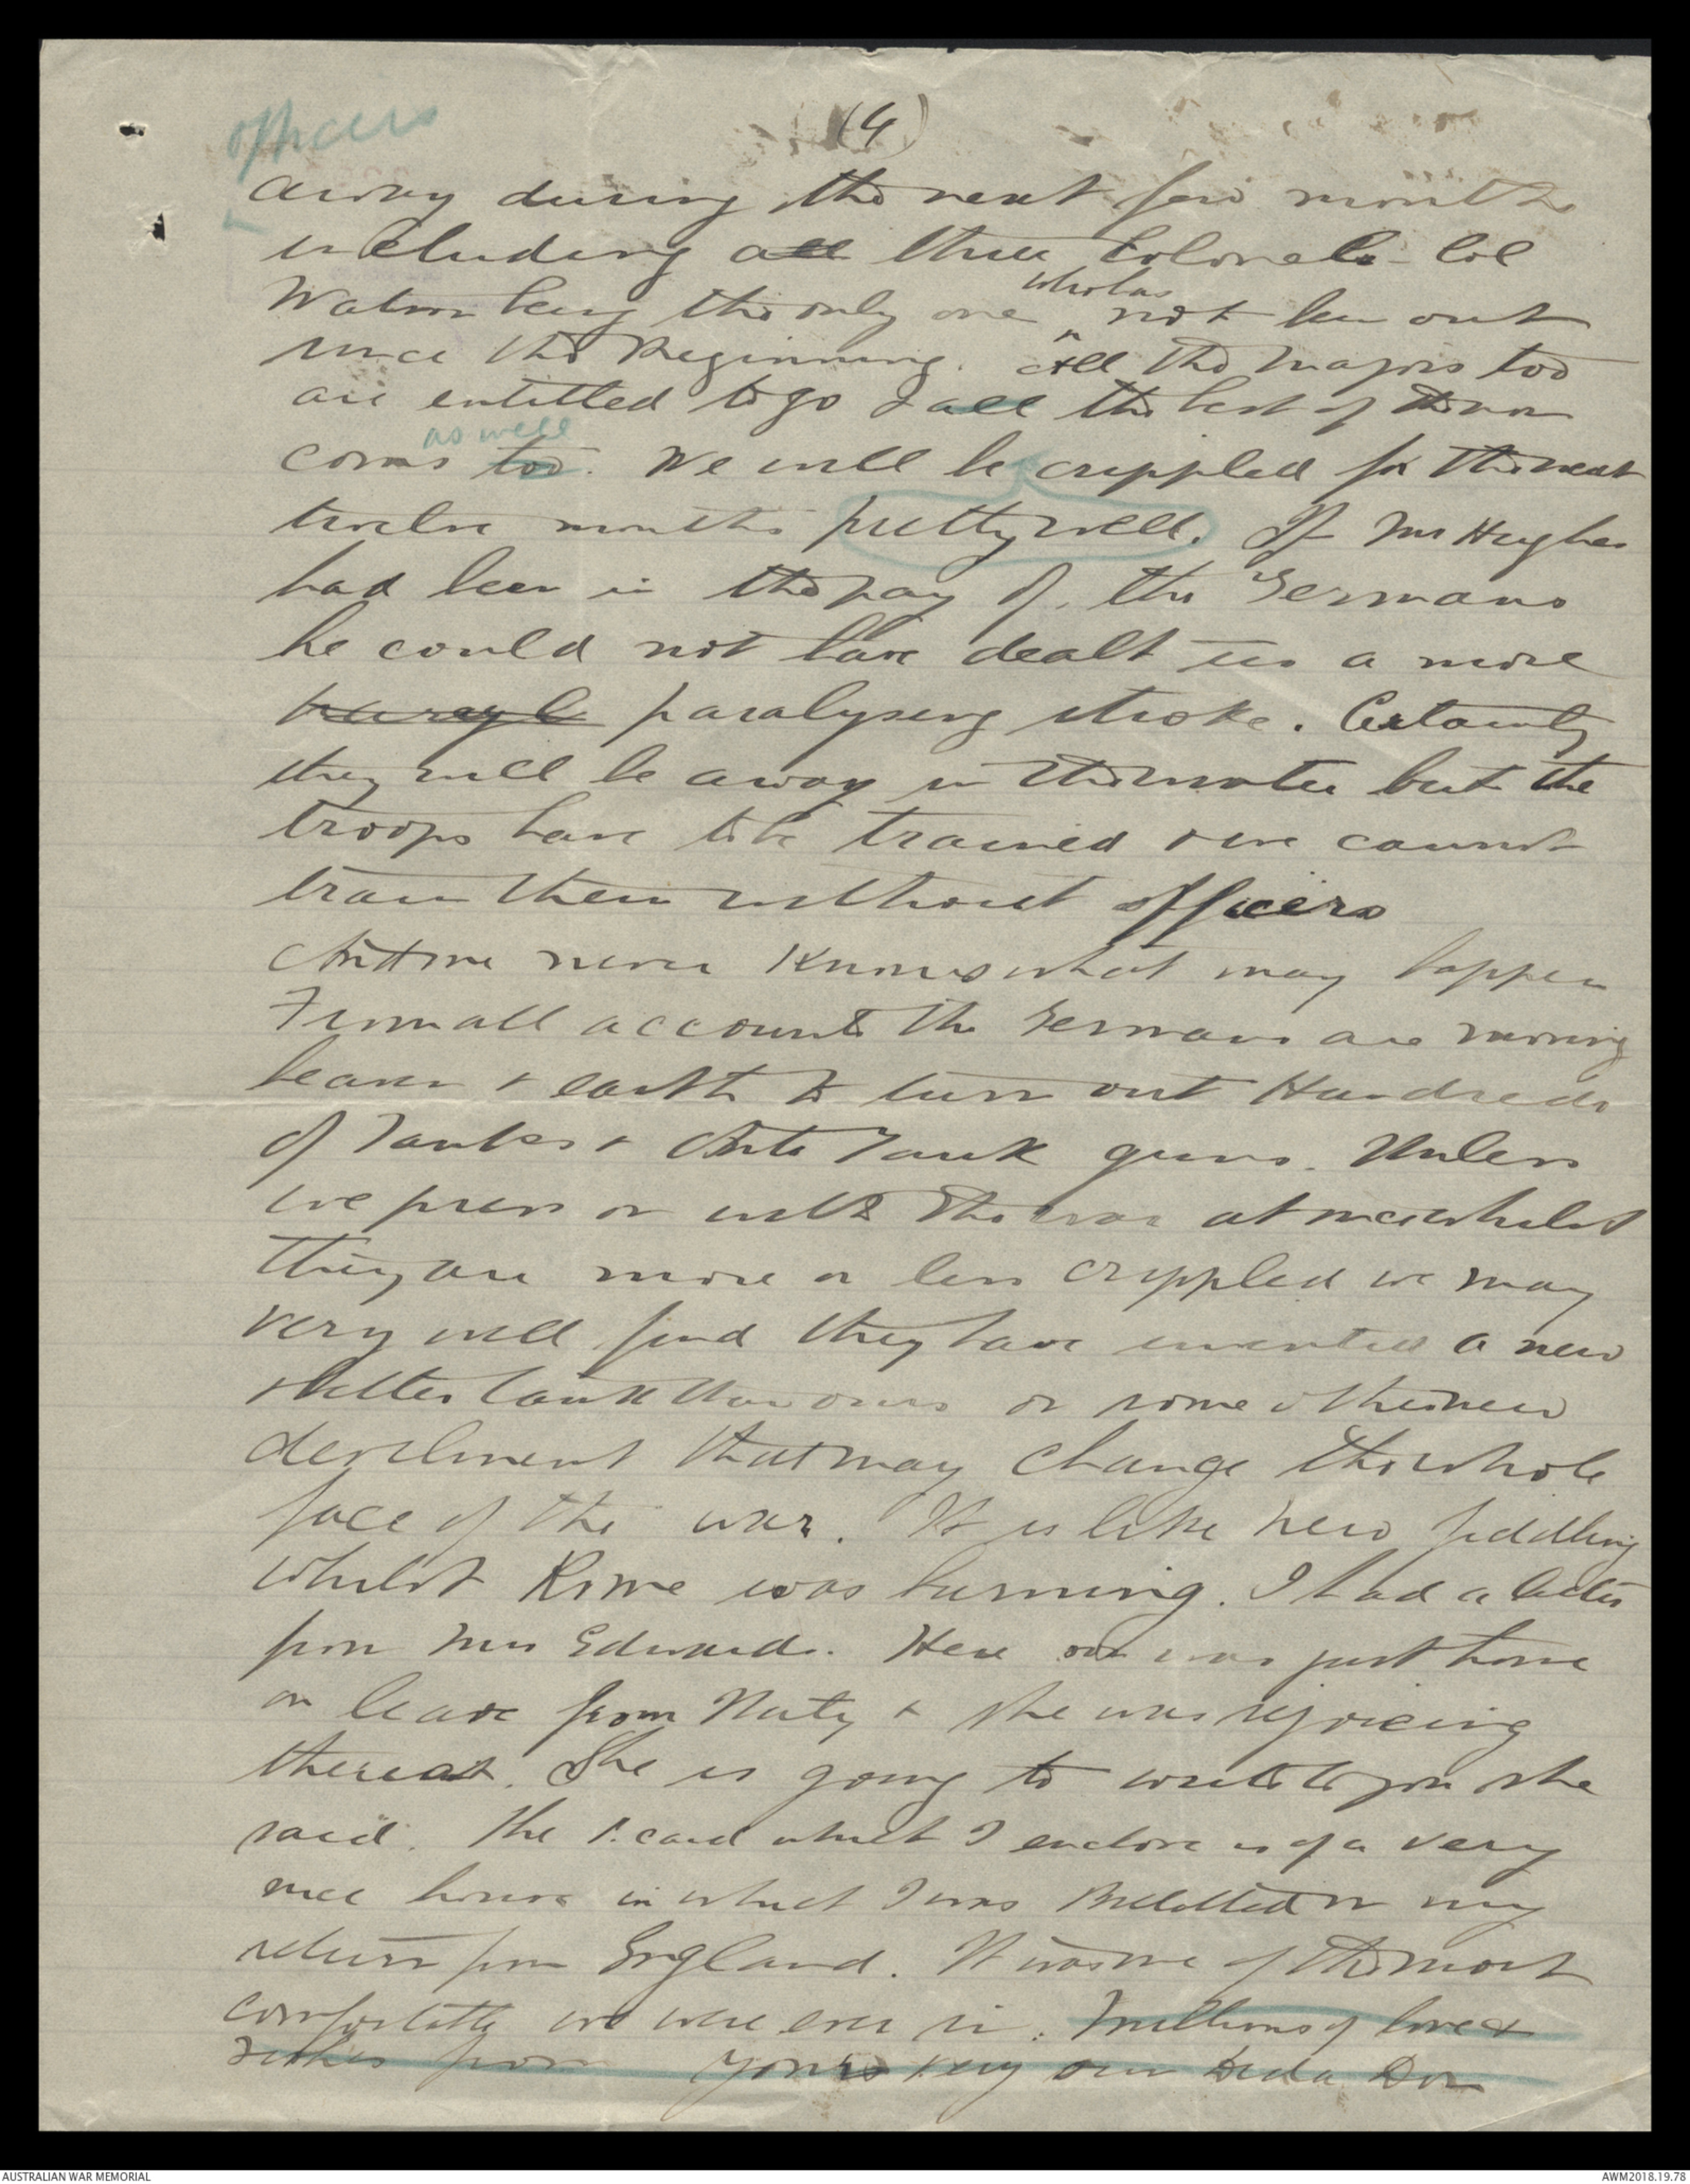 (4)
officers
away during the next few months
including all three Colonels - Col
Watson being the only one who has not been out
since the Beginning. All the majors too
are entitled to go & all the best of the non
coms too. as well We will be crippled for the next
twelve months pretty well. If Mr Hughes
had been in the pay of the Germans
he could not have dealt us a more
paralysing stroke. Certainly
they will be away in the winter but the
troops have to be trained & we cannot
train them without officers
And one never knows what may happen
From all accounts the Germans are moving
heaven & earth to turn out Hundreds
of Tanks & Anti Tank guns. Unless
we press on with the war at once whilst
they are more or less crippled we may
very well find they have invented a new
& better tank than ours or some other new
devilment that may change the whole
face of the war. It is like Nero fiddling
whilst Rome was burning. I had a letter
from Mrs Edwards. Her son was just home
on leave from Duty & she was rejoicing
thereat. She is going to write to you she
said. The P. card which I enclose is of a very
nice house in which I was Billetted on my
return from England. It was one of the most
comfortable we were ever in. Millions of love &
kisses from Yours very own Dida Don
AUSTRALIAN WAR MEMORIAL
AWM2018.19.78